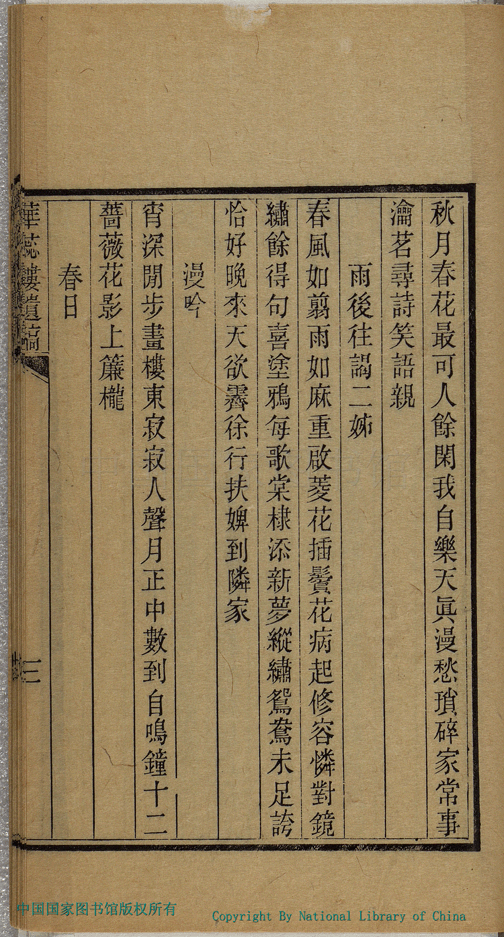 秋月春花最可人餘閑我自樂天眞漫愁瑣碎家常事
瀹茗尋詩笑語親
雨後往謁二姊
春風如翦雨如麻重啟菱花插鬢花病起修容憐對鏡
繡餘得句喜塗鴉每歌棠棣添新夢縱繡鴛鴦未足誇
恰好晚來天欲霽徐行扶婢到隣家
漫吟
宵深閒步畫樓東寂寂人聲月正中數到自鳴鐘十二
薔薇花影上簾櫳
春日
華蕊樓遺稿
三
中国国家图书馆版权所有
Copyright By National Library of China